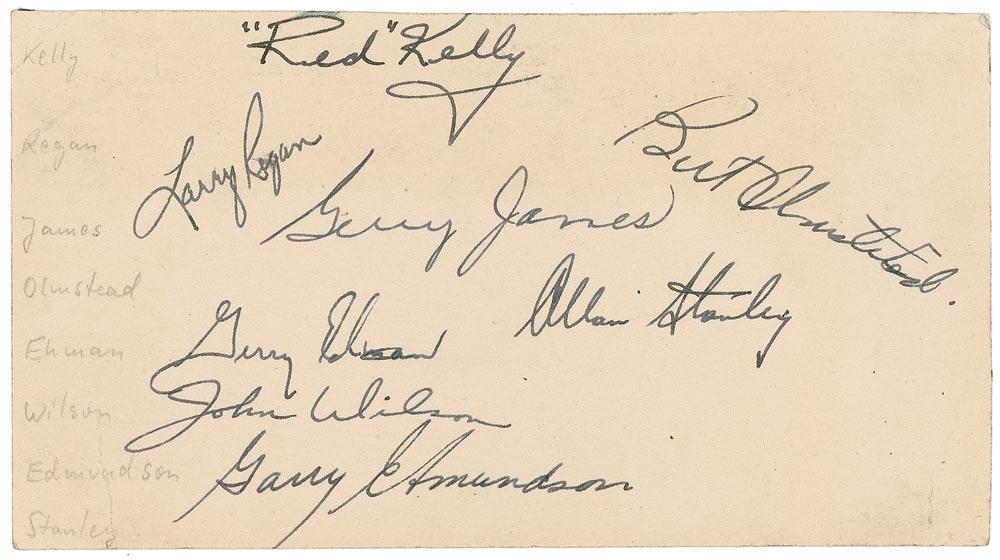 Kelly
Regan
James
Olmstead
Ehman
Wilson
Edmundson
Stanley
"Red" Kelly
Larry Regan
Bert Olmstead.
Gerry James
Allan Stanley
Gerry Ehman
John Wilson
Garry Edmundson